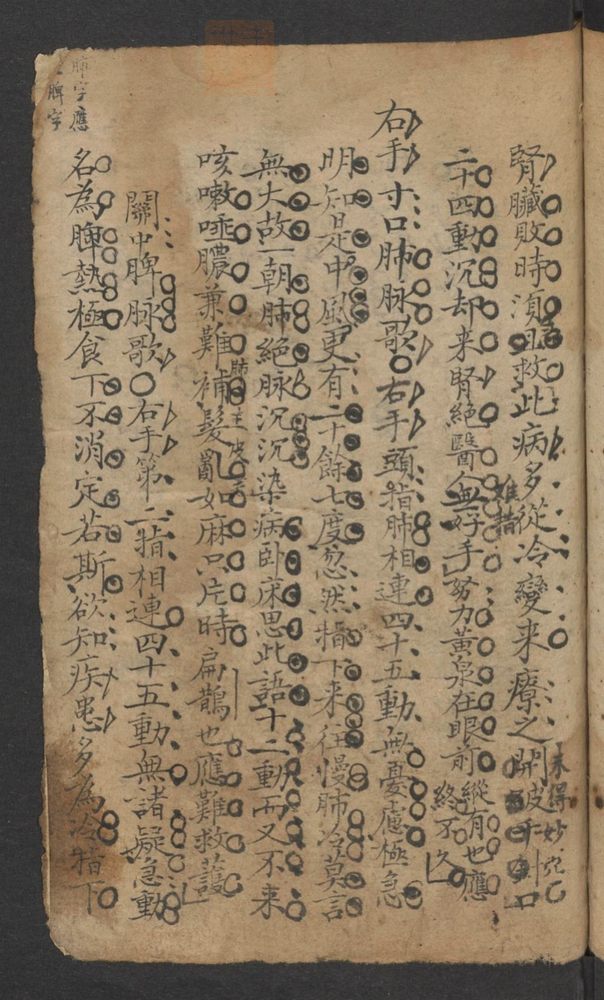 腎臟敗時須且救此病多從冷變來療之開破千金口
未得妙穴
二十四動沉却来腎絕醫人無好手努力黃泉在眼前縱有也應終不久
難指
右手寸口肺脉歌〇右手頭指肺相連四十五動無憂慮極急
明知是中風更有二十餘七度忽然指下来往慢肺冷莫言
無大故一朝肺絕脉沉沉染病卧床思此語十二動而又不来
咳嗽唾膿兼難補髮亂如麻只片時扁鵲也應難救護
肺主皮毛
關中脾脉歌〇右手第二指相連四十五動無諸疑急動
名為脾熱極食下不消定若斯欲知疾患多為冷指下
脾字應
脾字